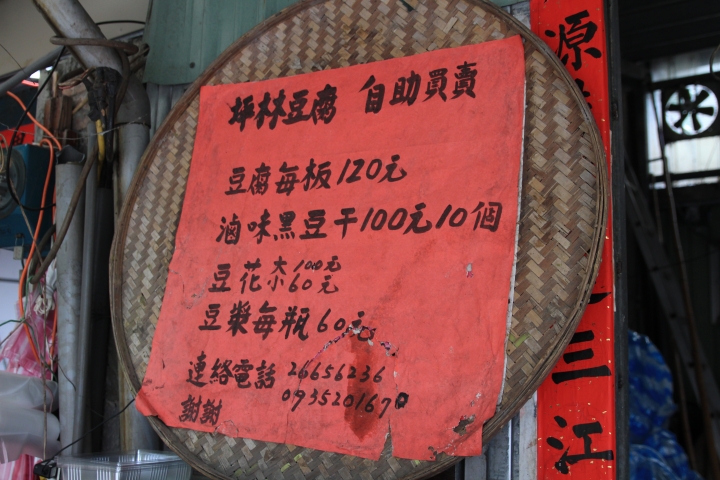 坪林豆腐 自助買賣
豆腐每板120元
滷味黑豆干100元10個
豆花 大100元 小60元
豆漿每瓶60元
連絡電話 26656236
0955201670
謝謝
源
三江